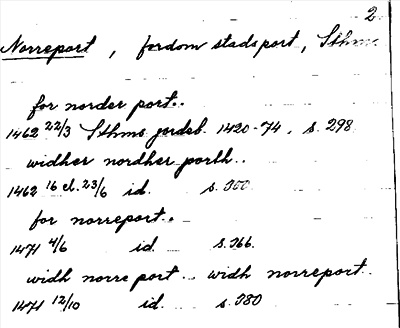 2.
Norreport, fordom stadsport, Sthm.
for norder port..
1462 22/3 Sthms jordeb. 1420-74. s. 298
widher nordher porth..
1462 16 el. 23/6 id. s.
for norreport..
1471 4/6 id. s. 366.
widh norre port.. widh norreport..
1471 12/10 id. s. 380